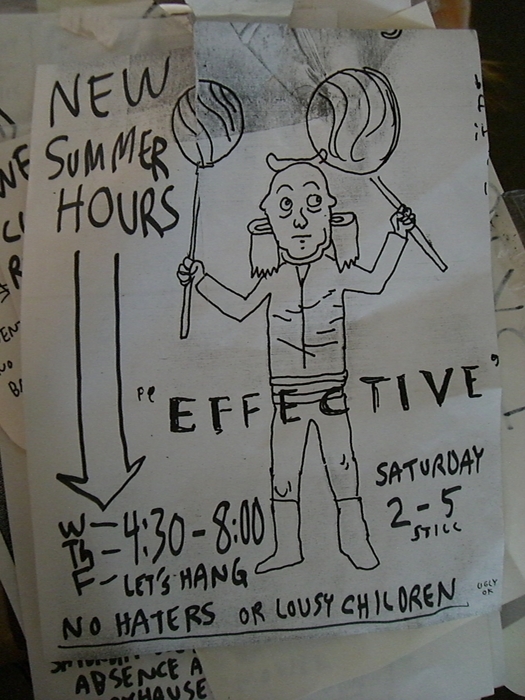 NEW
SUMMER
HOURS
"EFFECTIVE"
W - 4:30 - 8:00
Th -
F - LET'S HANG
SATURDAY
2 - 5
STILL
NO HATERS OR LOUSY CHILDREN
UGLY
OK
ABSENCE A